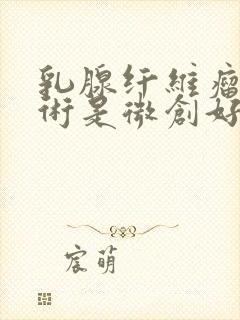 乳腺纤維瘤
術是微創好
宸萌